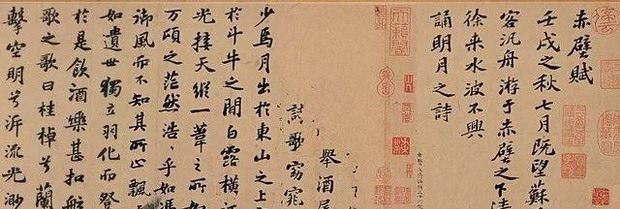 赤壁賦
壬戌之秋七月既望蘇
客汎舟游于赤壁之下清
徐来水波不興
誦明月之詩
舉酒屬
歌窈窕
少焉月出於東山之上
於斗牛之間白露橫江
光接天縱一葦之所如
万頃之茫然浩〻乎如馮
御風而不知其所止飄
如遺世獨立羽化而登
於是飲酒樂甚扣舷
歌之歌曰桂棹兮蘭
擊空明兮泝流光渺